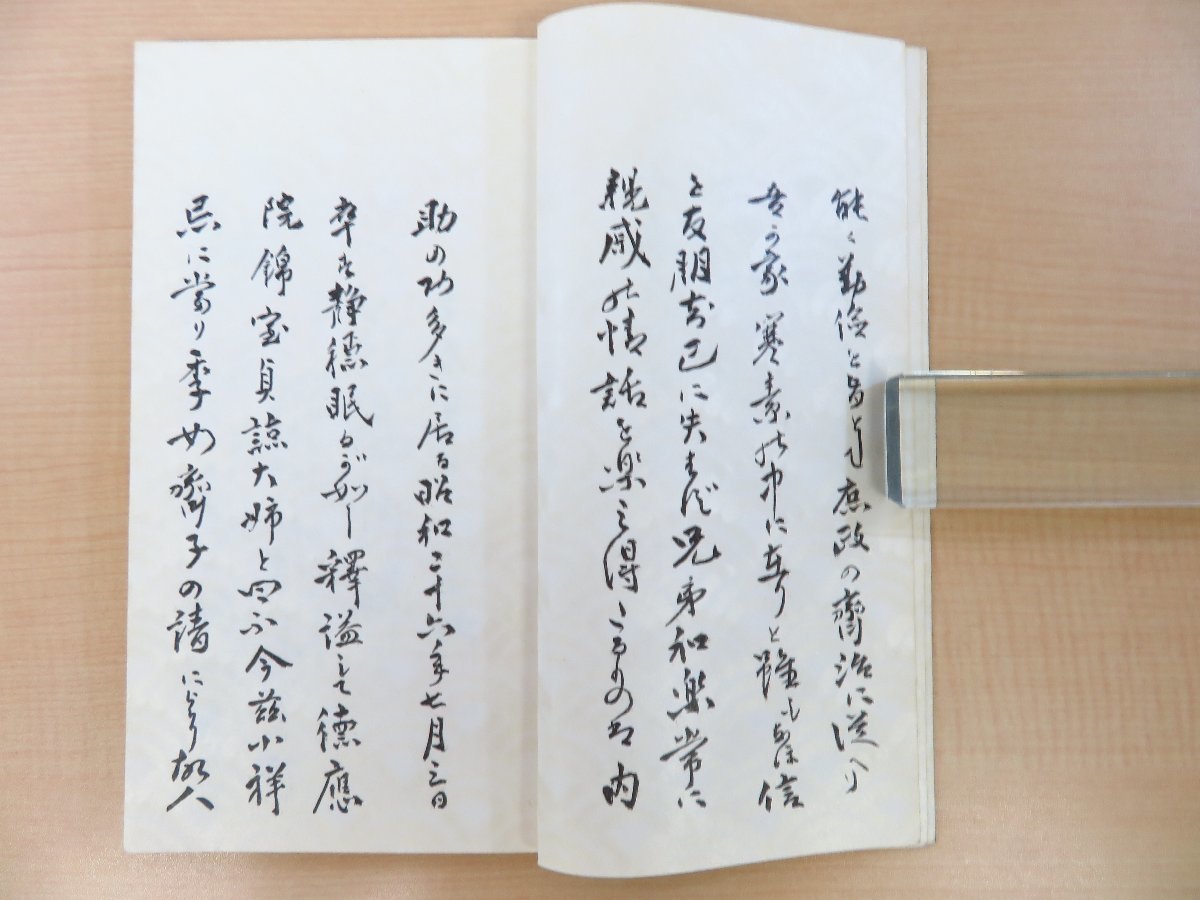 能く勤倹を旨とし庶政の齊治に従へり
吾が家寒素の中に在りと雖もなほ信
を友朋知己に失はず兄弟和楽常に
親戚の情話を楽しみ得たるもの は内
助の功多きに居る昭和三十六年七月三日
卒す静穏眠るが如し釋謚して徳應
院錦室貞諒大姉と曰ふ今茲小祥
忌に當り季女齊子の請により故人